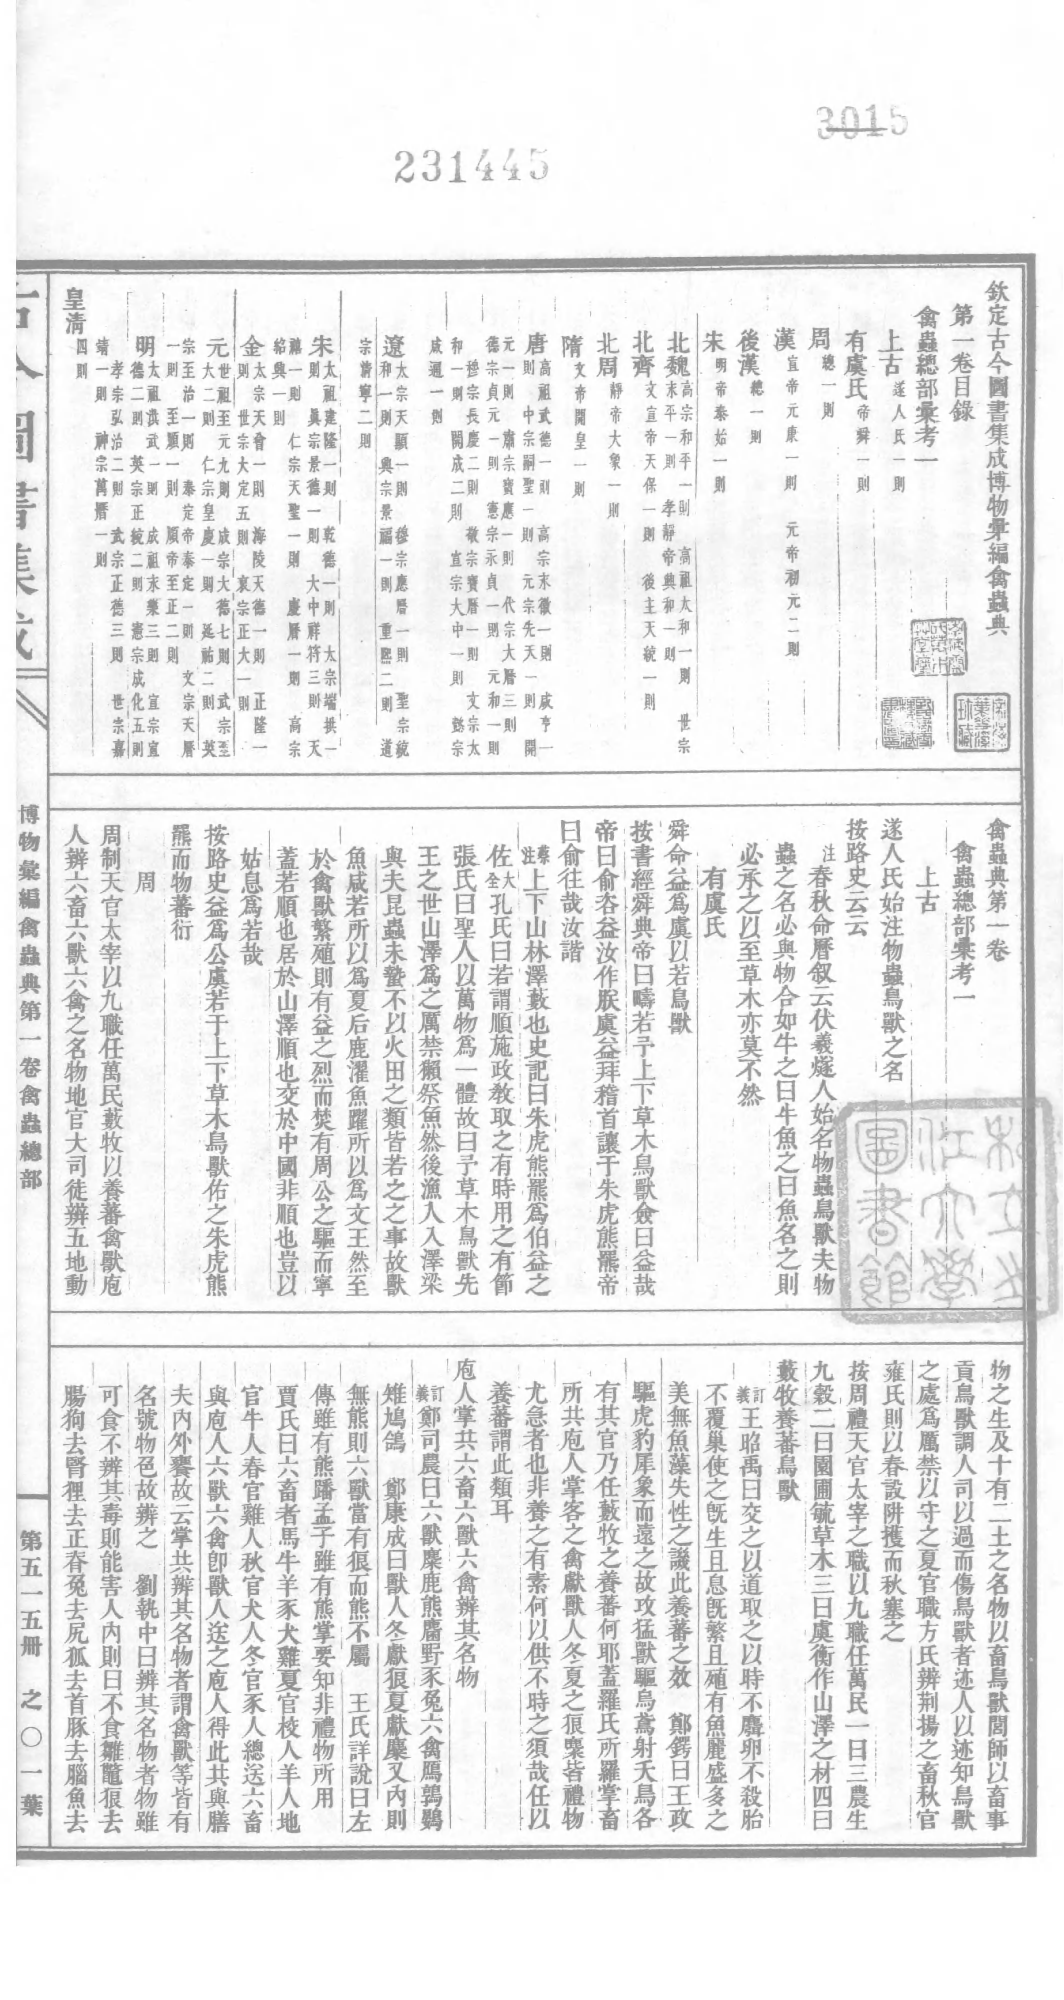 3015
231445
欽定古今圖書集成博物彙編禽蟲典
第一卷目錄
禽蟲總部彙考一
上古 遂人氏一則
有虞氏 帝舜一則
周 總一則
漢 宣帝元康一則 元帝初元二則
後漢 總一則
宋 明帝泰始一則
北魏 高宗和平一則 高祖太和一則 世宗
永平一則 孝靜帝興和一則
北齊 文宣帝天保一則 後主天統一則
北周 靜帝大象一則
隋 文帝開皇一則
唐 高祖武德一則 高宗永徽一則 咸亨一
則 中宗嗣聖一則 元宗先天一則 開
元一則 肅宗寶應一則 代宗大曆三則
德宗貞元一則 憲宗永貞一則 元和一則
穆宗長慶二則 敬宗寶曆一則 文宗太
和一則 開成二則 宣宗大中一則 懿宗
咸通一則
遼 太宗天顯一則 穆宗應曆一則 聖宗統
和一則 興宗景福一則 重熙二則 道
宗清寧二則
宋 太祖建隆一則 乾德一則 太宗端拱一
則 眞宗景德一則 大中祥符三則 天
禧一則 仁宗天聖一則 慶曆一則 高宗
紹興一則
金 太宗天會一則 海陵天德一則 正隆一
則 世宗大定五則 哀宗正大一則
元 世祖至元九則 成宗大德七則 武宗至
大二則 仁宗皇慶一則 延祐二則 英
宗至治一則 泰定帝泰定一則 文宗天曆
一則 至順一則 順帝至正二則
明 太祖洪武一則 成祖永樂三則 宣宗宣
德二則 英宗正統二則 憲宗成化五則
孝宗弘治二則 武宗正德三則 世宗嘉
靖一則 神宗萬曆一則
皇清 四則
禽蟲典第一卷
禽蟲總部彙考一
上古
遂人氏始注物蟲鳥獸之名
按路史云云
注春秋命曆叙云伏羲燧人始名物蟲鳥獸夫物
蟲之名必與物合如牛之曰牛魚之曰魚名之則
必承之以至草木亦莫不然
有虞氏
舜命益爲虞以若鳥獸
按書經舜典帝曰疇若予上下草木鳥獸僉曰益哉
帝曰俞咨益汝作朕虞益拜稽首讓于朱虎熊羆帝
曰俞往哉汝諧
蔡注上下山林澤藪也史記曰朱虎熊羆爲伯益之
佐大全孔氏曰若謂順施政敎取之有時用之有節
張氏曰聖人以萬物爲一體故曰予草木鳥獸先
王之世山澤爲之厲禁獺祭魚然後漁人入澤梁
與夫昆蟲未蟄不以火田之類皆若之之事故獸
魚咸若所以爲夏后鹿濯魚躍所以爲文王然至
於禽獸繁殖則有益之烈而焚有周公之驅而寧
蓋若順也居於山澤順也交於中國非順也豈以
姑息爲若哉
按路史益爲公虞若于上下草木鳥獸佑之朱虎熊
羆而物蕃衍
周
周制天官太宰以九職任萬民藪牧以養蕃禽獸庖
人辨六畜六獸六禽之名物地官大司徒辨五地動
物之生及十有二土之名物以畜鳥獸閭師以畜事
貢鳥獸調人司以過而傷鳥獸者迹人以迹知鳥獸
之處爲厲禁以守之夏官職方氏辨荆揚之畜秋官
雍氏則以春設阱擭而秋塞之
按周禮天官太宰之職以九職任萬民一曰三農生
九穀二曰園圃毓草木三曰虞衡作山澤之材四曰
藪牧養蕃鳥獸
訂義王昭禹曰交之以道取之以時不麛卵不殺胎
不覆巢使之旣生且息旣繁且殖有魚麗盛多之
美無魚藻失性之譏此養蕃之效 鄭鍔曰王政
驅虎豹犀象而遠之故攻猛獸驅烏鳶射夭鳥各
有其官乃任藪牧之養蕃何耶蓋羅氏所羅掌畜
所共庖人掌客之禽獻獸人冬夏之狼麋皆禮物
尤急者也非養之有素何以供不時之須哉任以
養蕃謂此類耳
庖人掌共六畜六獸六禽辨其名物
訂義鄭司農曰六獸麋鹿熊麕野豕兔六禽鴈鶉鷃
雉鳩鴿 鄭康成曰獸人冬獻狼夏獻麋又內則
無熊則六獸當有狼而熊不屬 王氏詳說曰左
傳雖有熊蹯孟子雖有熊掌要知非禮物所用
賈氏曰六畜者馬牛羊豕犬雞夏官校人羊人地
官牛人春官雞人秋官犬人冬官豕人總送六畜
與庖人六獸六禽卽獸人送之庖人得此共與膳
夫內外饔故云掌共辨其名物者謂禽獸等皆有
名號物色故辨之 劉執中曰辨其名物者物雖
可食不辨其毒則能害人內則曰不食雛鼈狼去
腸狗去腎狸去正脊兔去尻狐去首豚去腦魚去
古今圖書集成
博物彙編禽蟲典第一卷禽蟲總部
第五一五册 之〇一葉
國立浙江大學圖書館